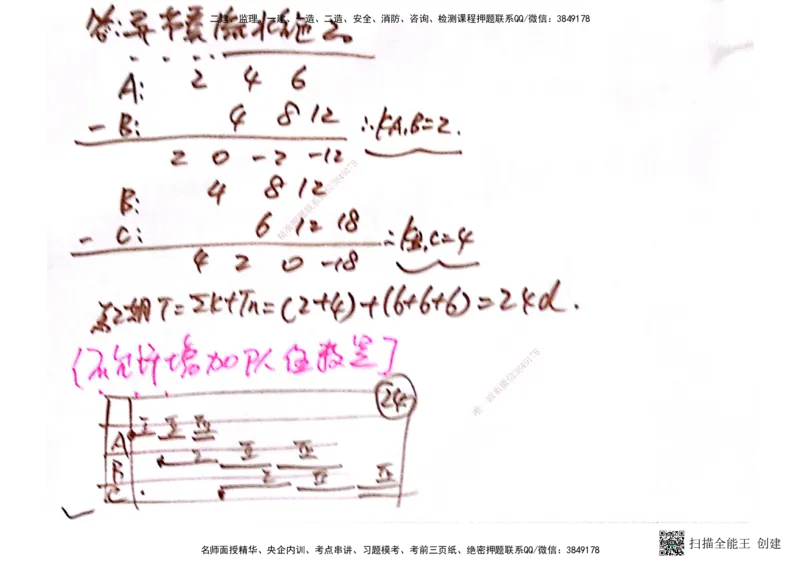 二建、监理、一建、一造、二造、安全、消防、咨询、检测课程押题联系QQ/微信：3849178
答：异节奏流水施工。
A: 2 4 6
- B: 4 8 12 ∴KA,B=2.
2 0 -2 -12
B: 4 8 12
- C: 6 12 18 ∴KB,C=4
4 2 0 -18
总工期T=ΣK+Tn=(2+4)+(6+6+6)=24d.
(不允许增加队伍数量]
24
A I II III
B I II III
C I II III
名师面授精华、央企内训、考点串讲、习题模考、考前三页纸、绝密押题联系QQ/微信：3849178
扫描全能王 创建